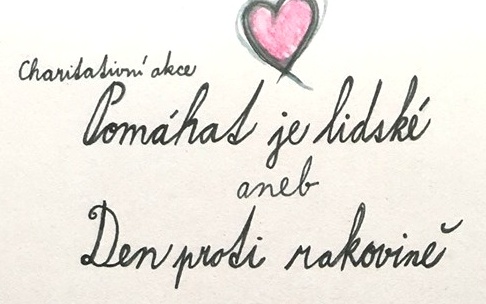 Charitativní akce
Pomáhat je lidské
aneb
Den proti rakovině